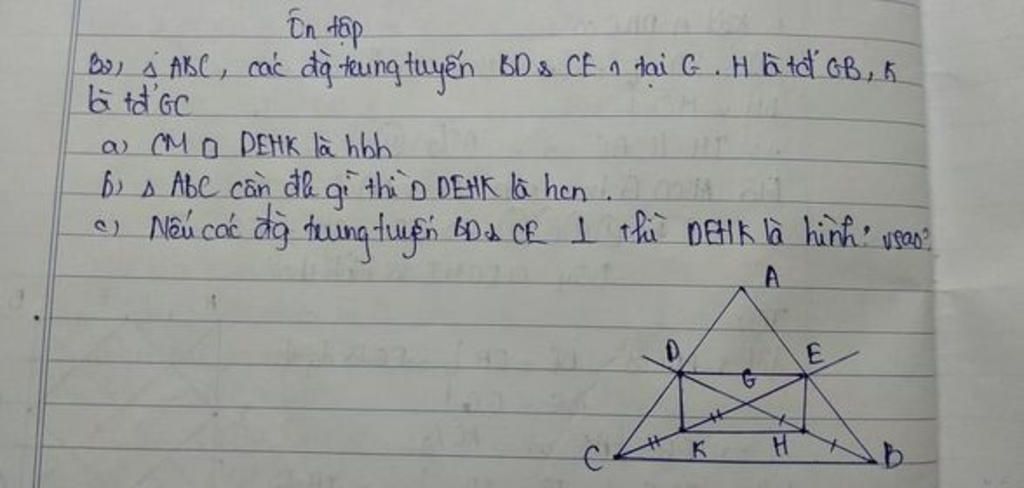 Ôn tập
Bài, △ ABC, các đg trung tuyến BD & CE ∩ tại G. H là tđ GB, K
là tđ GC
a) CM □ DEHK là hbh
b) △ ABC cần đk gì thì □ DEHK là hcn.
c) Nếu các đg trung tuyến BD & CE ⊥ thì DEHK là hình? vsao?
A
D E
G
C K H B